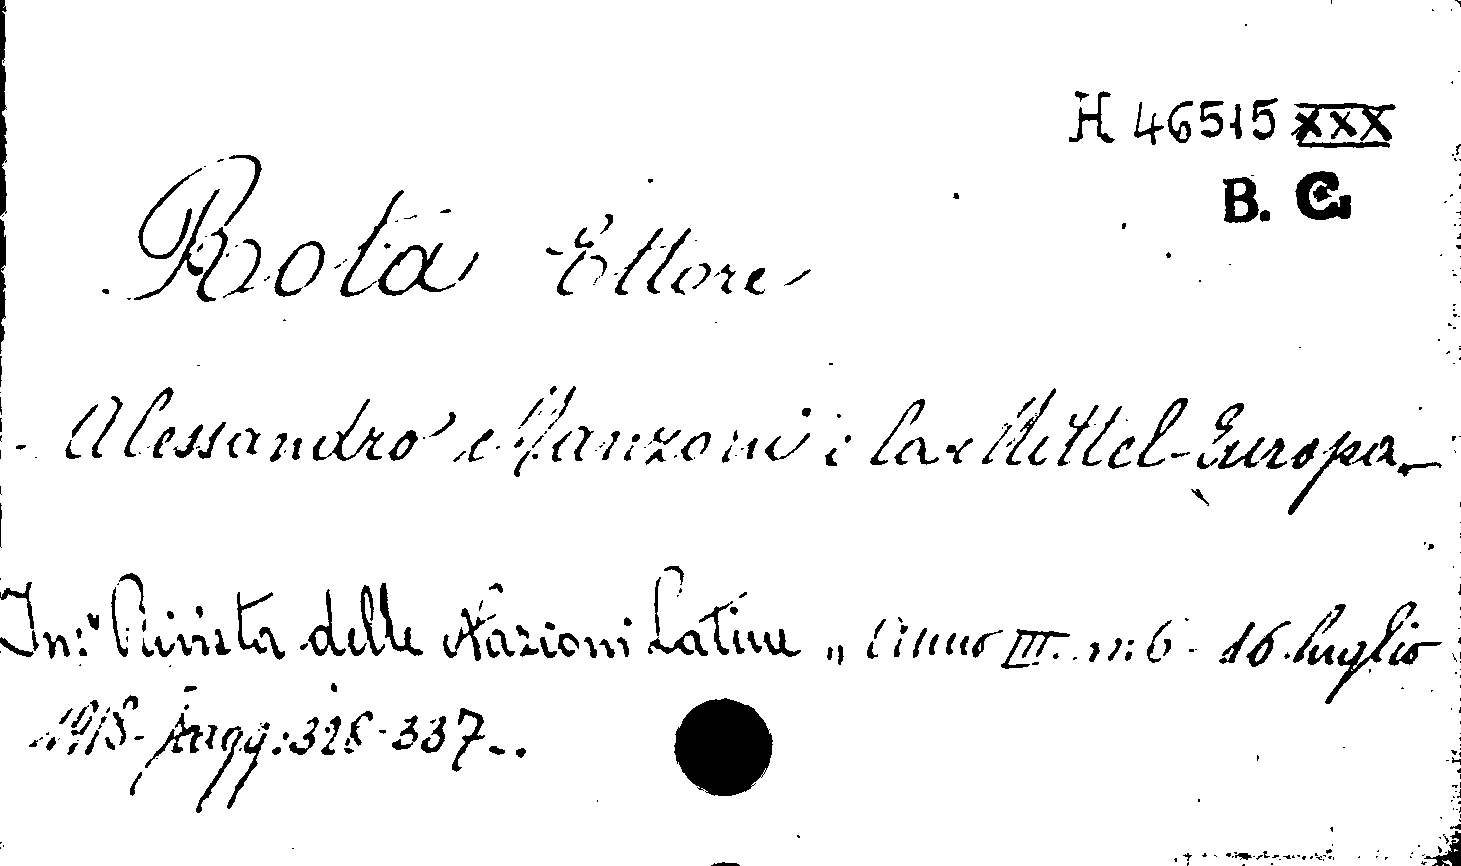 H 46515 XXX
B. C.
Rota Ettore
Alessandro Manzoni e la Mittel-Europa.
In: "Rivista delle Nazioni Latine„ Anno III. n: 6 - 16 luglio
1918 - pagg: 328-337-.